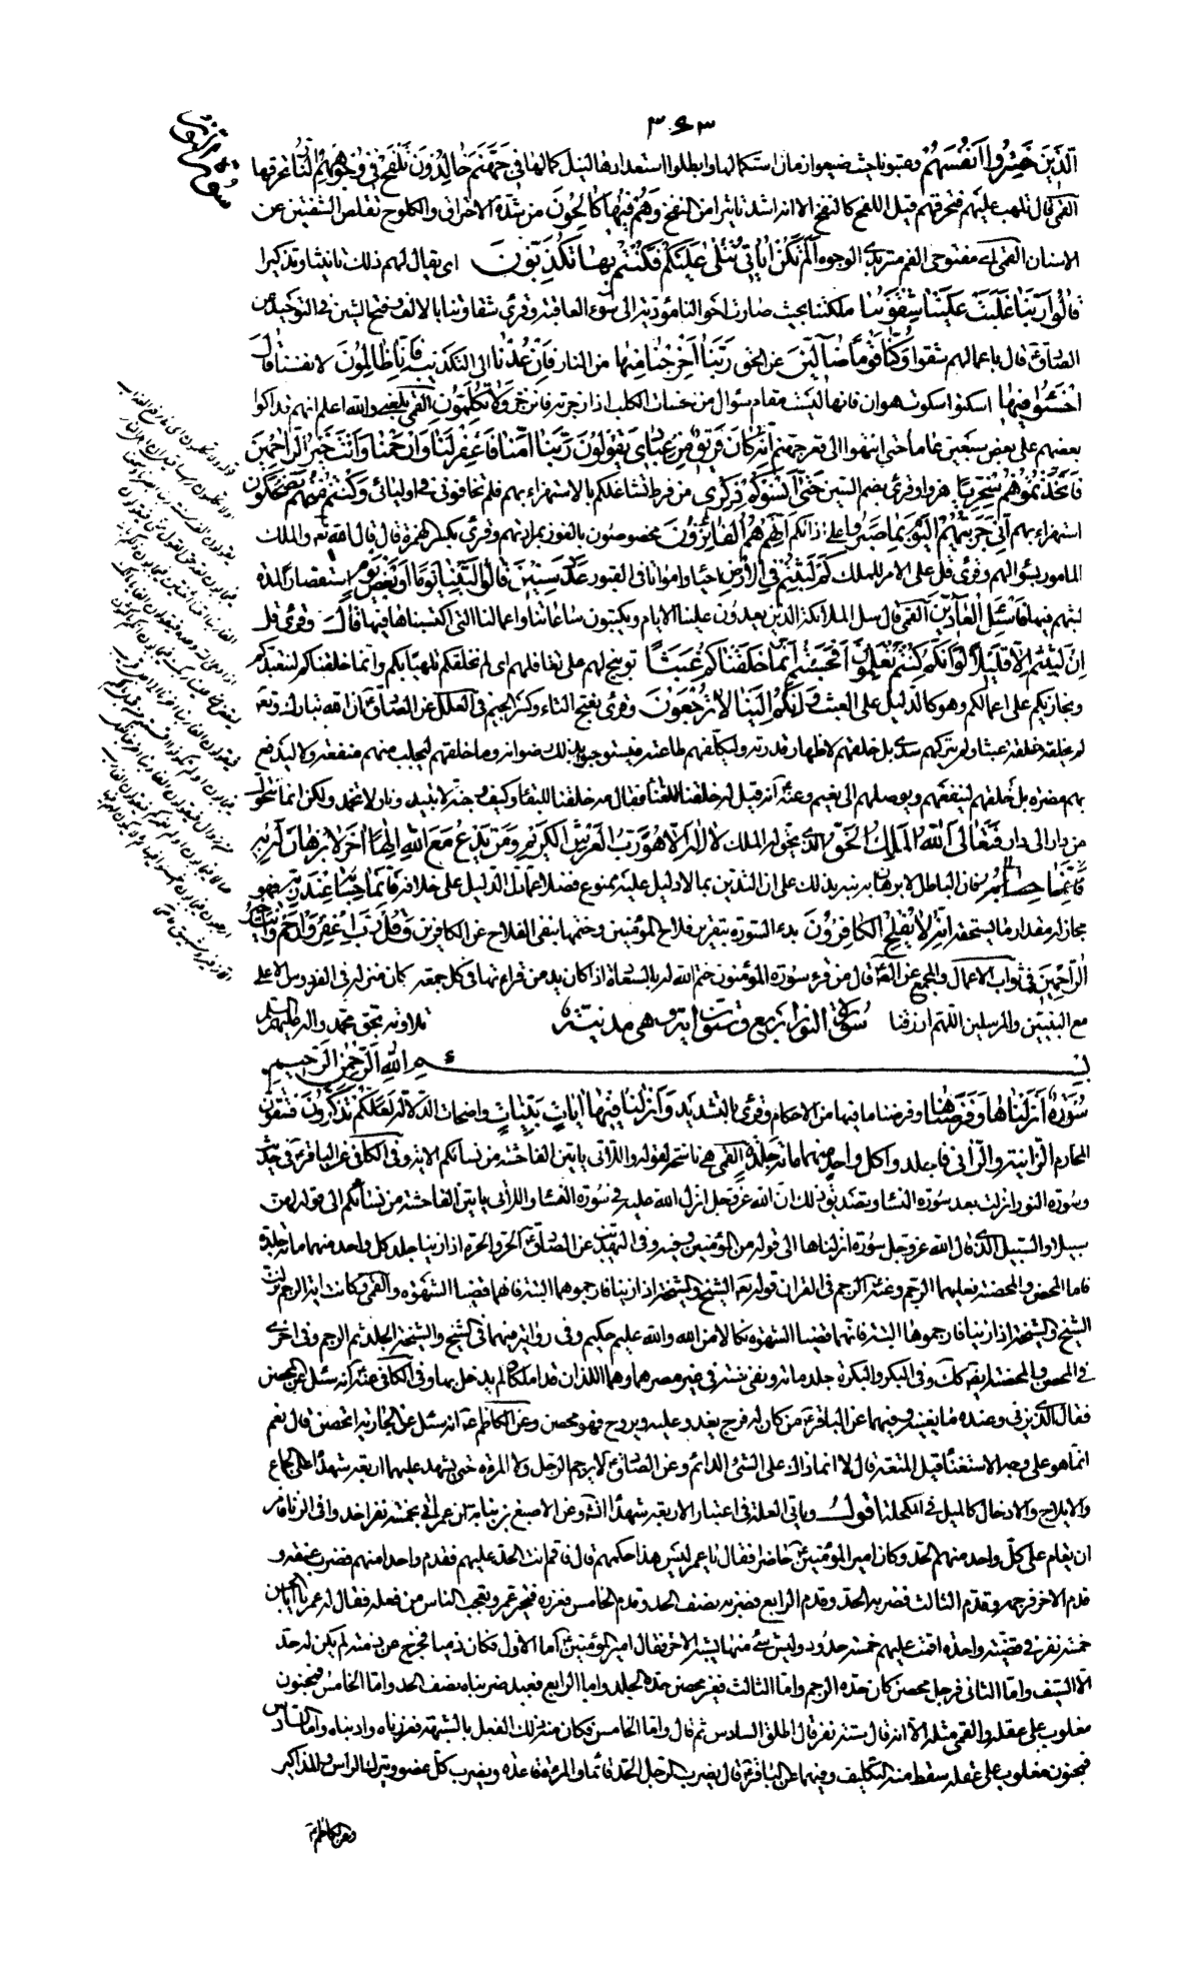 ٣٤٣
سورة النور
الَّذينَ خَسِرُوا أَنْفُسَهُمْ وغبنوها حيث ضيعوا زمان استكمالها وابطلوا استعدادها لنيل كمالها في جَهَنَّمَ خالِدُونَ تَلْفَحُ وُجُوهَهُمُ النَّارُ تحرقها
القمي قال تلهب عليهم فتحرقهم قيل اللفح كالنفح الا انه اشد تأثيرا من النفح وَهُمْ فيها كالِحُونَ من شدة الاحتراق والكلوح تقلص الشفتين عن
الاسنان القمي اي مفتوحي الفم متربدي الوجوه أَلَمْ تَكُنْ آياتي تُتْلى عَلَيْكُمْ فَكُنْتُمْ بِها تُكَذِّبُونَ اي يقال لهم ذلك تانيبا وتذكيرا
قالُوا رَبَّنا غَلَبَتْ عَلَيْنا شِقْوَتُنا ملكتنا بحيث صارت احوالنا مؤدية الى سوء العاقبة وقرئ شقاوتنا بالالف وفتح الشين في التوحيد عن
الصادق قال باعمالهم شقوا وَكُنَّا قَوْماً ضالِّينَ عن الحق رَبَّنا أَخْرِجْنا مِنْها من النار فَإِنْ عُدْنا الى التكذيب فَإِنَّا ظالِمُونَ لانفسنا قالَ
اخْسَؤُا فيها اسكتوا سكوت هوان فانها ليست مقام سؤال من خسأت الكلب اذا زجرته فانزجر وَلا تُكَلِّمُونِ القمي بلغني والله اعلم انهم تداكوا
بعضهم على بعض سبعين عاما حتى انتهوا الى قعر جهنم إِنَّهُ كانَ فَريقٌ مِنْ عِبادي يَقُولُونَ رَبَّنا آمَنَّا فَاغْفِرْ لَنا وَارْحَمْنا وَأَنْتَ خَيْرُ الرَّاحِمينَ
فَاتَّخَذْتُمُوهُمْ سِخْرِيًّا هزوا وقرئ بضم السين حَتَّى أَنْسَوْكُمْ ذِكْري من فرط تشاغلكم بالاستهزاء بهم فلم تخافوني في اوليائي وَكُنْتُمْ مِنْهُمْ تَضْحَكُونَ
استهزاء بهم إِنِّي جَزَيْتُهُمُ الْيَوْمَ بِما صَبَرُوا على اذاكم أَنَّهُمْ هُمُ الْفائِزُونَ مخصوصون بالفوز بمرادتهم وقرئ بكسر الهمزة قال قال الله او الملك
المامور بسؤالهم وقرئ قل على الامر للملك كَمْ لَبِثْتُمْ فِي الْأَرْضِ احياء وامواتا في القبور عَدَدَ سِنينَ قالُوا لَبِثْنا يَوْماً أَوْ بَعْضَ يَوْمٍ استقصارا لمدة
لبثهم فيها فَسْئَلِ الْعادِّينَ القمي قال سل الملائكة الذين يعدون علينا الايام ويكتبون ساعاتنا واعمالنا التي اكتسبناها فيها قالَ وقرئ قل
إِنْ لَبِثْتُمْ إِلَّا قَليلاً لَوْ أَنَّكُمْ كُنْتُمْ تَعْلَمُونَ أَفَحَسِبْتُمْ أَنَّما خَلَقْناكُمْ عَبَثاً توبيخ لهم على تغافلهم اي لم نخلقكم تلهيا بكم وانما خلقناكم لنتعبدكم
ونجازيكم على اعمالكم وهو كالدليل على البعث وَأَنَّكُمْ إِلَيْنا لا تُرْجَعُونَ وقرئ بفتح التاء وكسر الجيم في العلل عن الصادق ان الله تبارك وتعالى
لم يخلق خلقه عبثا ولم يتركهم سدى بل خلقهم لاظهار قدرته وليكلفهم طاعته فيستوجبوا بذلك رضوانه وما خلقهم ليجلب منهم منفعة ولا ليدفع
بهم مضرة بل خلقهم لينفعهم ويوصلهم الى نعيم وعنه انه قيل له خلقنا للفناء فقال مه خلقنا للبقاء وكيف وجنة لا تبيد ونار لا تخمد ولكن انما نتحول
من دار الى دار فَتَعالَى اللهُ الْمَلِكُ الْحَقُّ الذي يحق له الملك لا إِلهَ إِلَّا هُوَ رَبُّ الْعَرْشِ الْكَريمِ وَمَنْ يَدْعُ مَعَ اللهِ إِلهاً آخَرَ لا بُرْهانَ لَهُ بِهِ
فان الباطل لا برهان به نبه بذلك على ان التدين بما لا دليل عليه ممنوع فضلا عما دل الدليل على خلافه فَإِنَّما حِسابُهُ عِنْدَ رَبِّهِ فهو
مجاز له مقدار ما يستحقه إِنَّهُ لا يُفْلِحُ الْكافِرُونَ بدء السورة بتقرير فلاح المؤمنين وختمها بنفي الفلاح عن الكافرين وَقُلْ رَبِّ اغْفِرْ وَارْحَمْ وَأَنْتَ خَيْرُ
الرَّاحِمينَ في ثواب الاعمال والمجمع عن الصادق قال من قرء سورة المؤمنون ختم الله له بالسعادة اذا كان يدمن قراءتها في كل جمعة كان منزله في الفردوس الاعلى
مع النبيين والمرسلين اللهم ارزقنا تلاوته بحق محمد واله عليهم السلام سورة النور اربع وستون اية وهي مدنية
بسم الله الرحمن الرحيم
سُورَةٌ أَنْزَلْناها وَفَرَضْناها وفرضنا ما فيها من الاحكام وقرئ بالتشديد وَأَنْزَلْنا فيها آياتٍ بَيِّناتٍ واضحات الدلالة لَعَلَّكُمْ تَذَكَّرُونَ فتتقون
المحارم الزَّانِيَةُ وَالزَّاني فَاجْلِدُوا كُلَّ واحِدٍ مِنْهُما مِائَةَ جَلْدَةٍ القمي هي ناسخة لقوله واللاتي ياتين الفاحشة من نسائكم الاية وفي الكافي عن الباقر في حديث
وسورة النور انزلت بعد سورة النساء وتصديق ذلك ان الله عز وجل انزل عليه في سورة النساء واللاتي ياتين الفاحشة من نسائكم الى قوله لهن
سبيلا والسبيل الذي قال الله عز وجل سورة انزلناها الى قوله من المؤمنين وفيه وفي التهذيب عن الصادق الحر والحرة اذا زنيا جلد كل واحد منهما مائة جلدة
فاما المحصن والمحصنة فعليهما الرجم وعنه الرجم في القران قوله تعالى الشيخ والشيخة اذا زنيا فارجموهما البتة فانهما قضيا الشهوة والقمي وكانت اية الرجم نزلت
الشيخ والشيخة اذا زنيا فارجموهما البتة فانهما قضيا الشهوة نكالا من الله والله عليم حكيم وفي رواية فيهما في الشيخ والشيخة الجلد ثم الرجم وفي اخرى
في المحصن والمحصنة ايضا كذلك وفي البكر والبكرة جلد مائة ونفي سنة في غير مصرهما وهما اللذان قد املكا ولم يدخل بها وفي الكافي عنه انه سئل عن المحصن
فقال الذي يزني وعنده ما يغنيه وفيهما عن الباقر من كان له فرج يغدو عليه ويروح فهو محصن وعن الكاظم انه سئل عن الجارية اتحصن قال نعم
انما هو على وجه الاستغناء قيل المتعة قال لا انما ذاك على الشئ الدائم وعن الصادق لا يرجم الرجل ولا المرءة حتى يشهد عليهما اربعة شهداء على الجماع
والايلاج والادخال كالميل في المكحلة اقول وياتي العلة في اعتبار الاربعة شهداء وعن الاصبغ بن نباتة ان عمر اتي بخمسة نفر اخذوا في الزنا فامر
ان يقام على كل واحد منهم الحد وكان امير المؤمنين حاضرا فقال يا عمر ليس هذا حكمهم قال فاقم انت الحد عليهم فقدم واحدا منهم فضرب عنقه و
قدم الاخر فرجمه وقدم الثالث فضربه الحد وقدم الرابع فضربه نصف الحد وقدم الخامس فعزره فتحير عمر وتعجب الناس من فعله فقال له عمر يا ابا الحسن
خمسة نفر في قضية واحدة اقمت عليهم خمسة حدود وليس شئ منها يشبه الاخر فقال امير المؤمنين اما الاول فكان ذميا فخرج عن ذمته لم يكن له حد
الا السيف واما الثاني فرجل محصن كان حده الرجم واما الثالث فغير محصن حده الجلد واما الرابع فعبد ضربناه نصف الحد واما الخامس فمجنون
مغلوب على عقله والقمي مثله الا انه قال ستة نفر قال اطلق السادس ثم قال واما الخامس فكان منه ذلك الفعل بالشبهة فعزرناه وادبناه واما السادس
فمجنون مغلوب على عقله سقط منه التكليف وفيهما عن الباقر قال يضرب الرجل الحد قائما والمرءة قاعدة ويضرب كل عضو ويترك الراس والمذاكير
وعن الكاظم